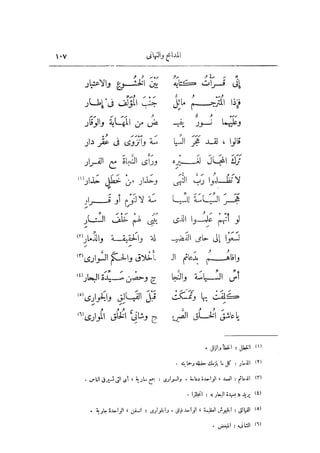 المدائح والتهاني
١٠٧
إنّى قرأت كتابه بين الخشوع والاعتبار
فإذا المترجم ماثل جنب المؤلف فى إطار
وعليهما نور يفيـ ض من المهابة والوقار
قالوا : لقد هجر السيا سة وانزوى فى عقر دار
ترك المجال لغيره ورأى النجاة مع الفرار
لا تظلموا رب النهى وحذار من خطل حذار (١)
هجر السياسة للسيا سة لا لنوم أو قرار
لو أنهم علموا الذى يبنى لهم خلف الستار
لسعوا إلى حامى الفضيـ لة والحقيقة والذمار (٢)
وافاهم بدعائم الـ أخلاق والحكم السوارى (٣)
أس السياسة والنجا ح وحصن سيدة البحار (٤)
كلفت بها وتمسكت قبل الفيالق والجوارى (٥)
يا عاشق الخلق الصريـ ح وشانئ الخلق الموارى (٦)
(١) الخطل : الخطأ والزلل .
(٢) الذمار : كل ما يلزمك حفظه وحمايته .
(٣) الدعائم : العمد ، الواحدة دعامة . والسوارى : جمع سارية ، أى التى تسير فى الناس .
(٤) يريد « بسيدة البحار » : انجلترا .
(٥) الفيالق : الجيوش العظيمة ، الواحد فيلق . والجوارى : السفن ، الواحدة جارية .
(٦) الشانئ : المبغض .